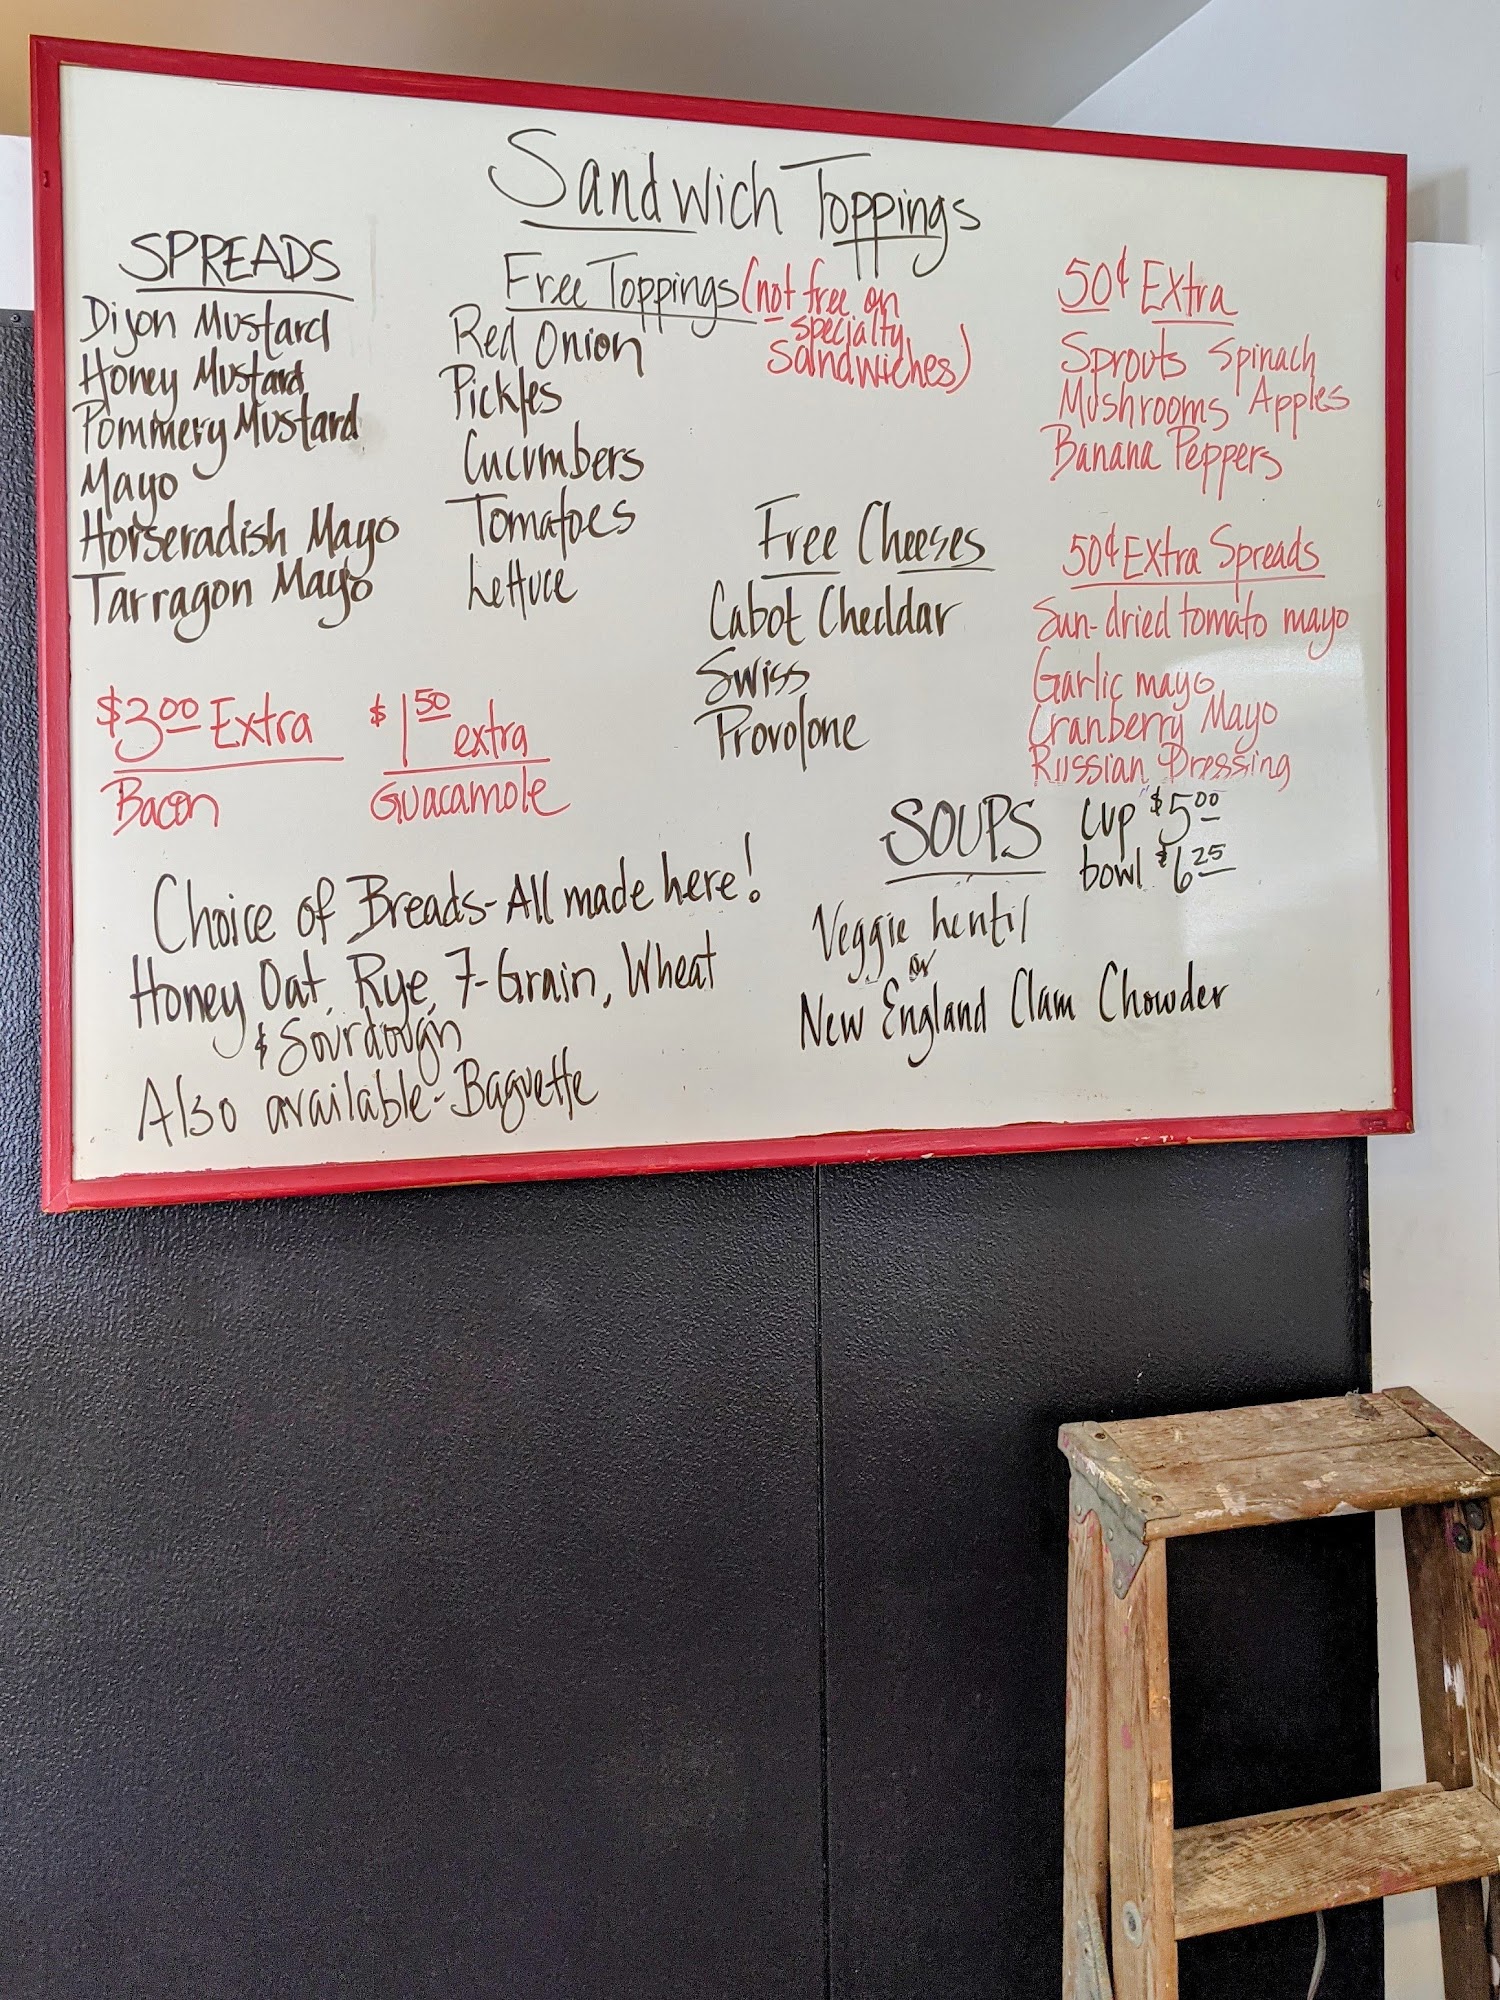 Sandwich Toppings
SPREADS
Dijon Mustard
Honey Mustard
Pommery Mustard
Mayo
Horseradish Mayo
Tarragon Mayo
Free Toppings (not free on
specialty
sandwiches)
Red Onion
Pickles
Cucumbers
Tomatoes
Lettuce
50¢ Extra
Sprouts Spinach
Mushrooms Apples
Banana Peppers
Free Cheeses
Cabot Cheddar
Swiss
Provolone
50¢ Extra Spreads
Sun-dried tomato mayo
Garlic mayo
Cranberry Mayo
Russian Dressing
$3.00 Extra
Bacon
$1.50 extra
Guacamole
SOUPS
cup $5.00
bowl $6.25
Veggie Lentil
or
New England Clam Chowder
Choice of Breads - All made here!
Honey Oat, Rye, 7-Grain, Wheat
& Sourdough
Also available - Baguette